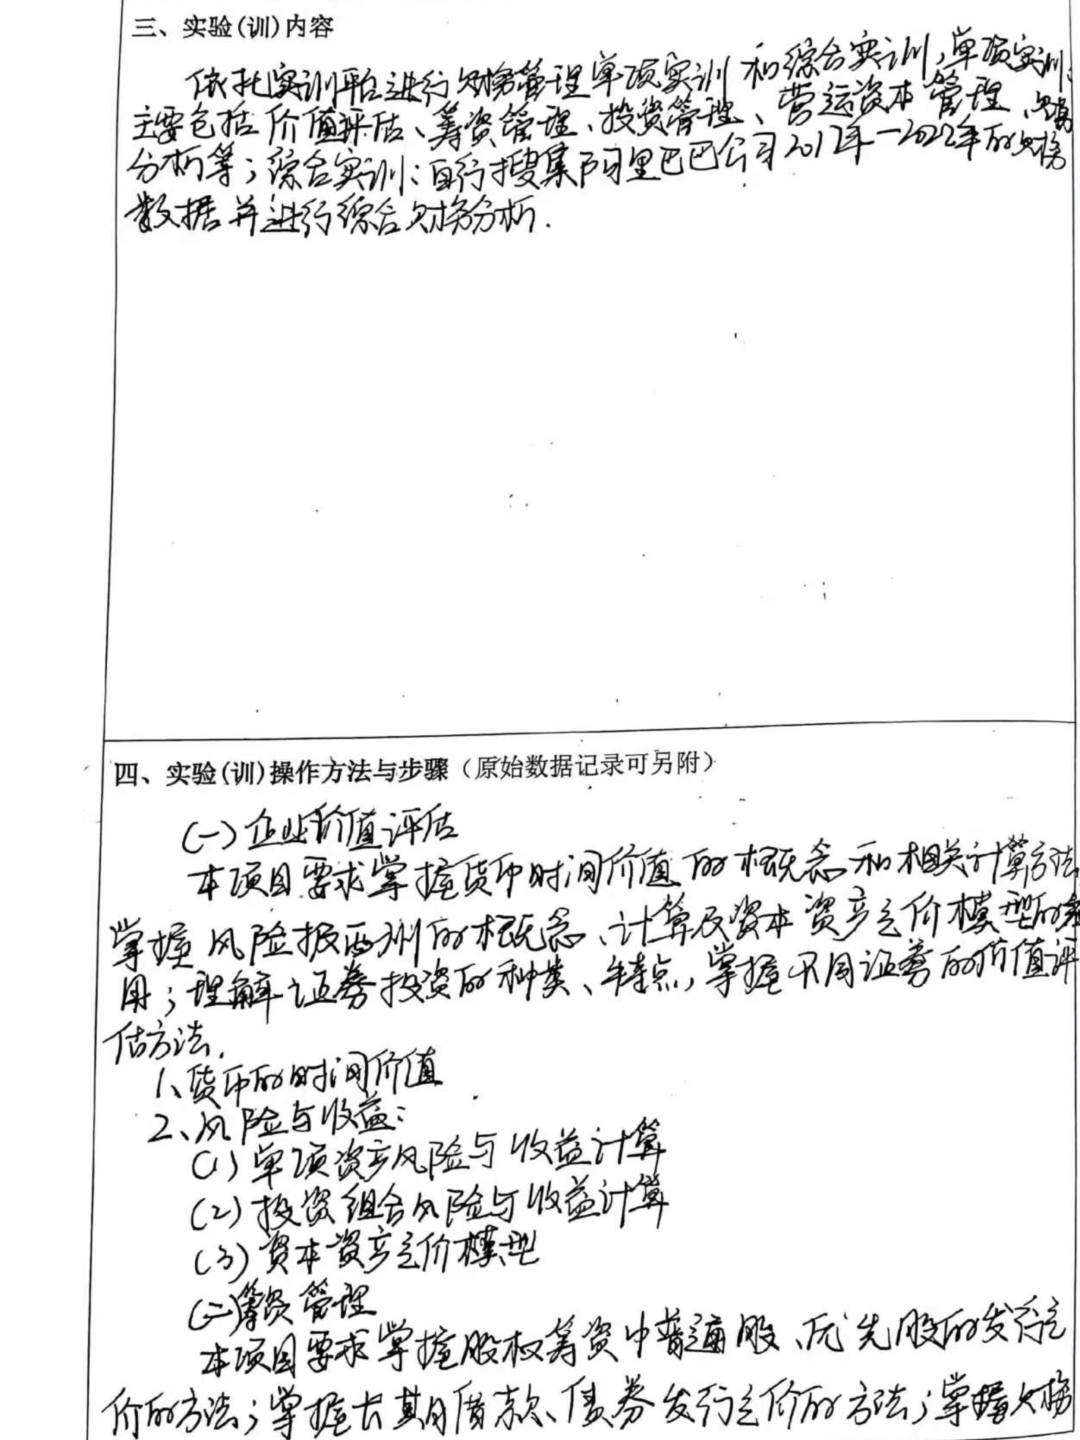 三、实验(训)内容
依托实训平台进行财务管理单项实训和综合实训,单项实训:
主要包括价值评估、筹资管理、投资管理、营运资本管理、财务
分析等;综合实训:自行搜集阿里巴巴公司2017年—2022年的财务
数据并进行综合财务分析.
四、实验(训)操作方法与步骤(原始数据记录可另附)
(一)企业价值评估
本项目要求掌握货币时间价值的概念和相关计算方法
掌握风险报酬的概念、计算及资本资产定价模型的
用;理解证券投资的种类、特点,掌握不同证券的价值评
估方法.
1、货币的时间价值
2、风险与收益:
(1)单项资产风险与收益计算
(2)投资组合风险与收益计算
(3)资本资产定价模型
(二)筹资管理
本项目要求掌握股权筹资中普通股、优先股的发行定
价的方法;掌握长期借款、债券发行定价的方法;掌握财务